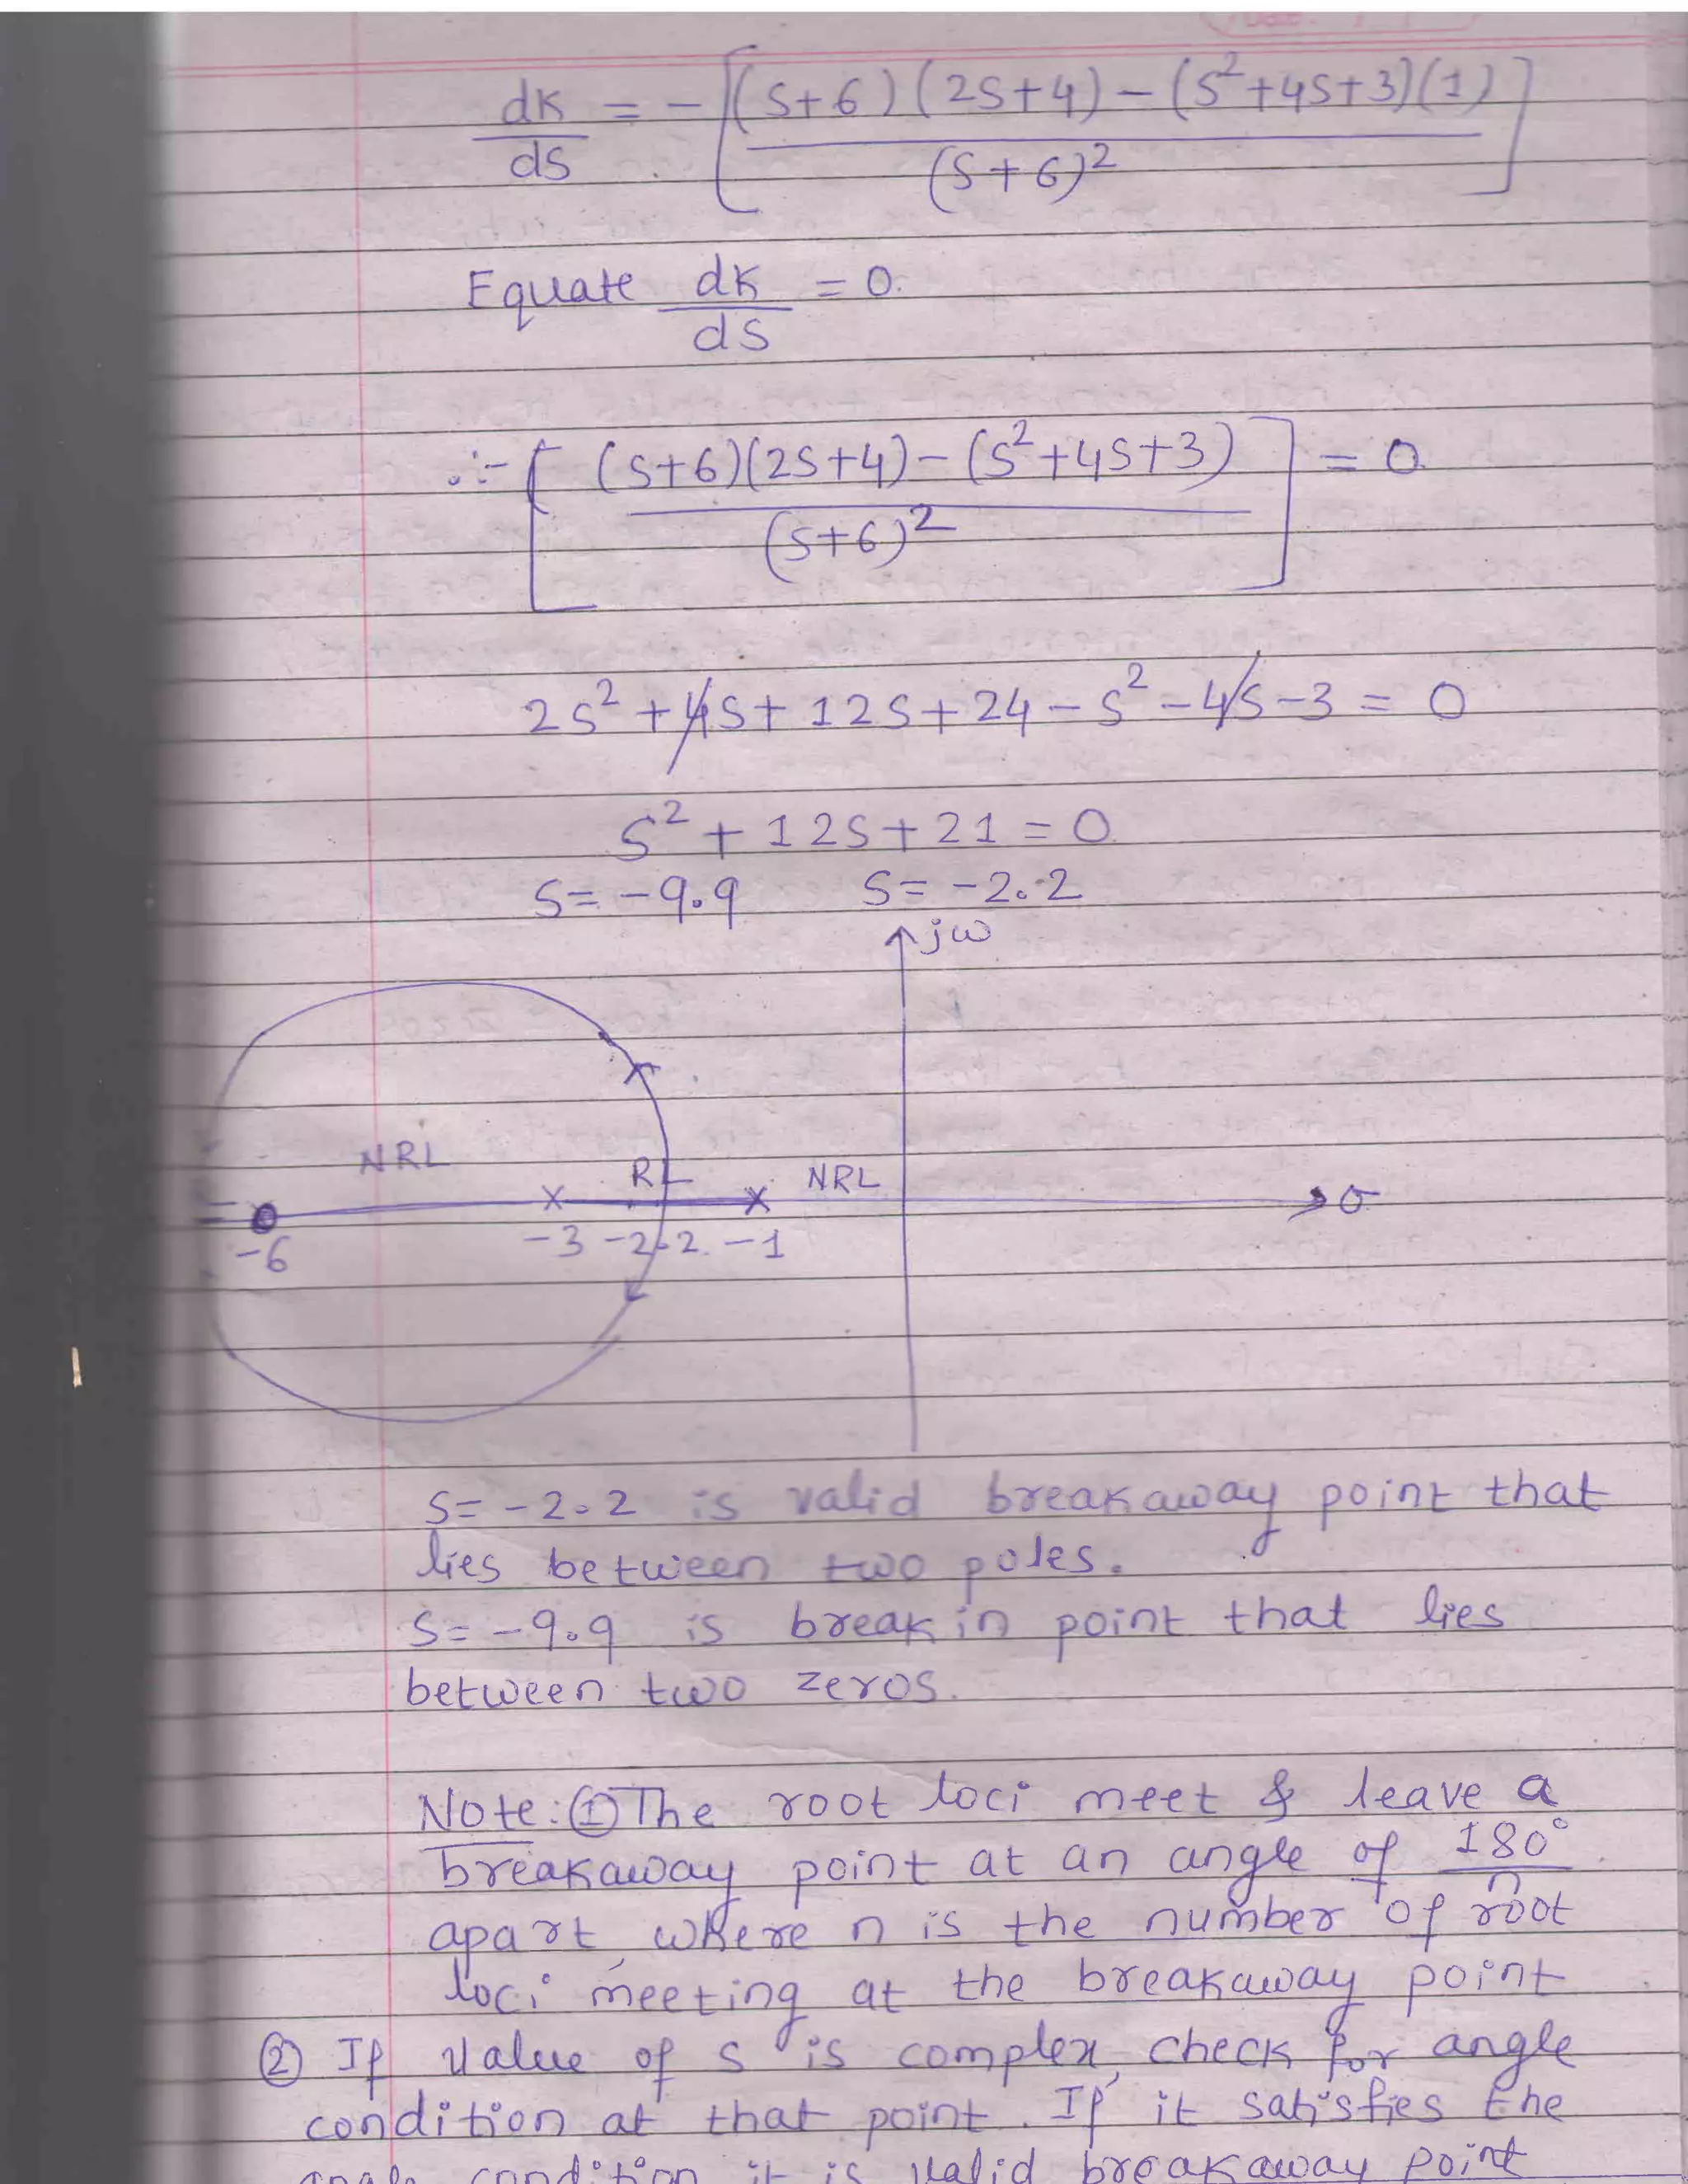 Date: / /
dK/ds = - [ (s+6)(2s+4) - (s²+4s+3)(1) / (s+6)² ]
Equate dK/ds = 0.
∴ - [ (s+6)(2s+4) - (s²+4s+3) / (s+6)² ] = 0
2s² + 4s + 12s + 24 - s² - 4s - 3 = 0
s² + 12s + 21 = 0
s = -9.9 s = -2.2
jω
NRL RL NRL
σ
-6 -3 -2.2 -1
s = -2.2 is valid breakaway point that
lies between two poles.
s = -9.9 is break in point that lies
between two zeros.
Note: ① The root loci meet & leave a
breakaway point at an angle of 180°/n
apart, where n is the number of root
loci meeting at the breakaway point
② If value of s is complex, check for angle
condition at that point. If it satisfies the
angle condition it is valid breakaway point